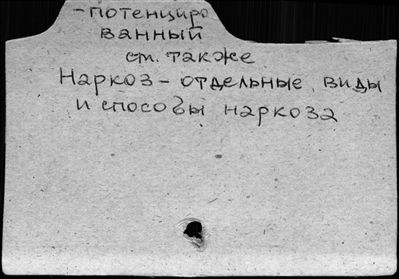 -потенциро
ванный
см. также
Наркоз - отдельные виды
и способы наркоза